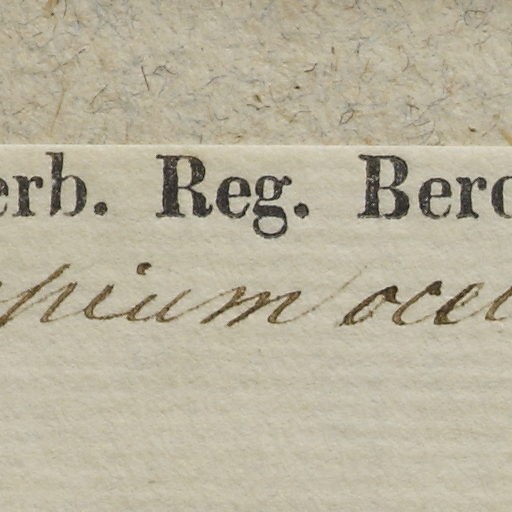 erb. Reg. Bero
pium ocel